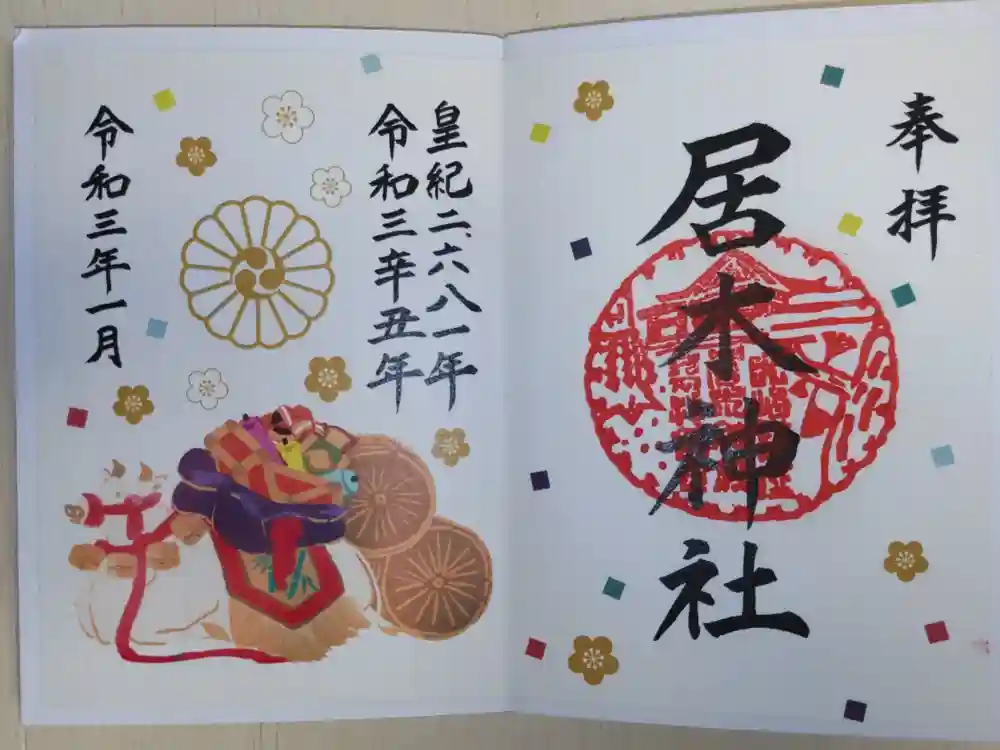 奉拝
居木神社
皇紀二、六八一年
令和三辛丑年
令和三年一月